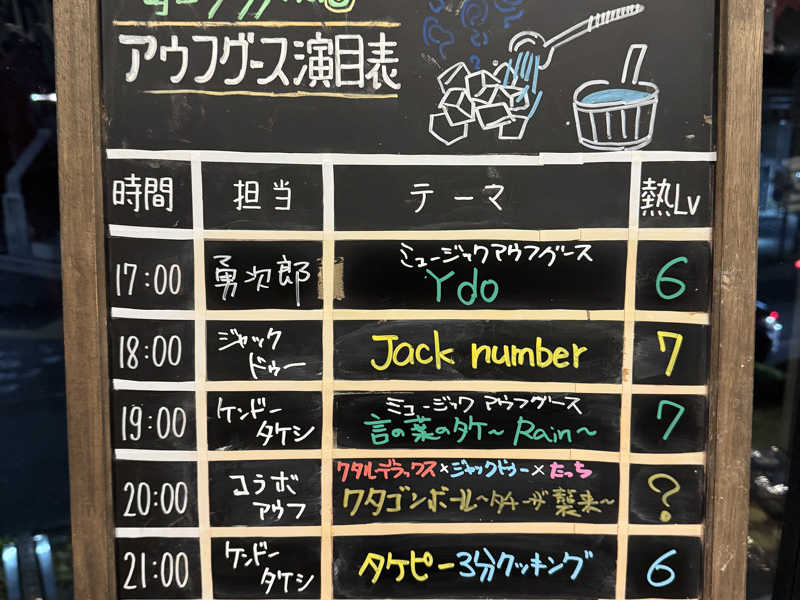 アウフグース演目表
時間 担当 テーマ 熱Lv
17:00 勇次郎 ミュージックアウフグース
Ydo 6
18:00 ジャック
ドゥー Jack number 7
19:00 ケンドー
タケシ ミュージック アウフグース
言の葉のタケ〜Rain〜 7
20:00 コラボ
アウフ ワタルデラックス×ジャックドゥー×たっち
ワタゴンボール〜タチーヂ襲来〜 ?
21:00 ケンドー
タケシ タケピー3分クッキング 6